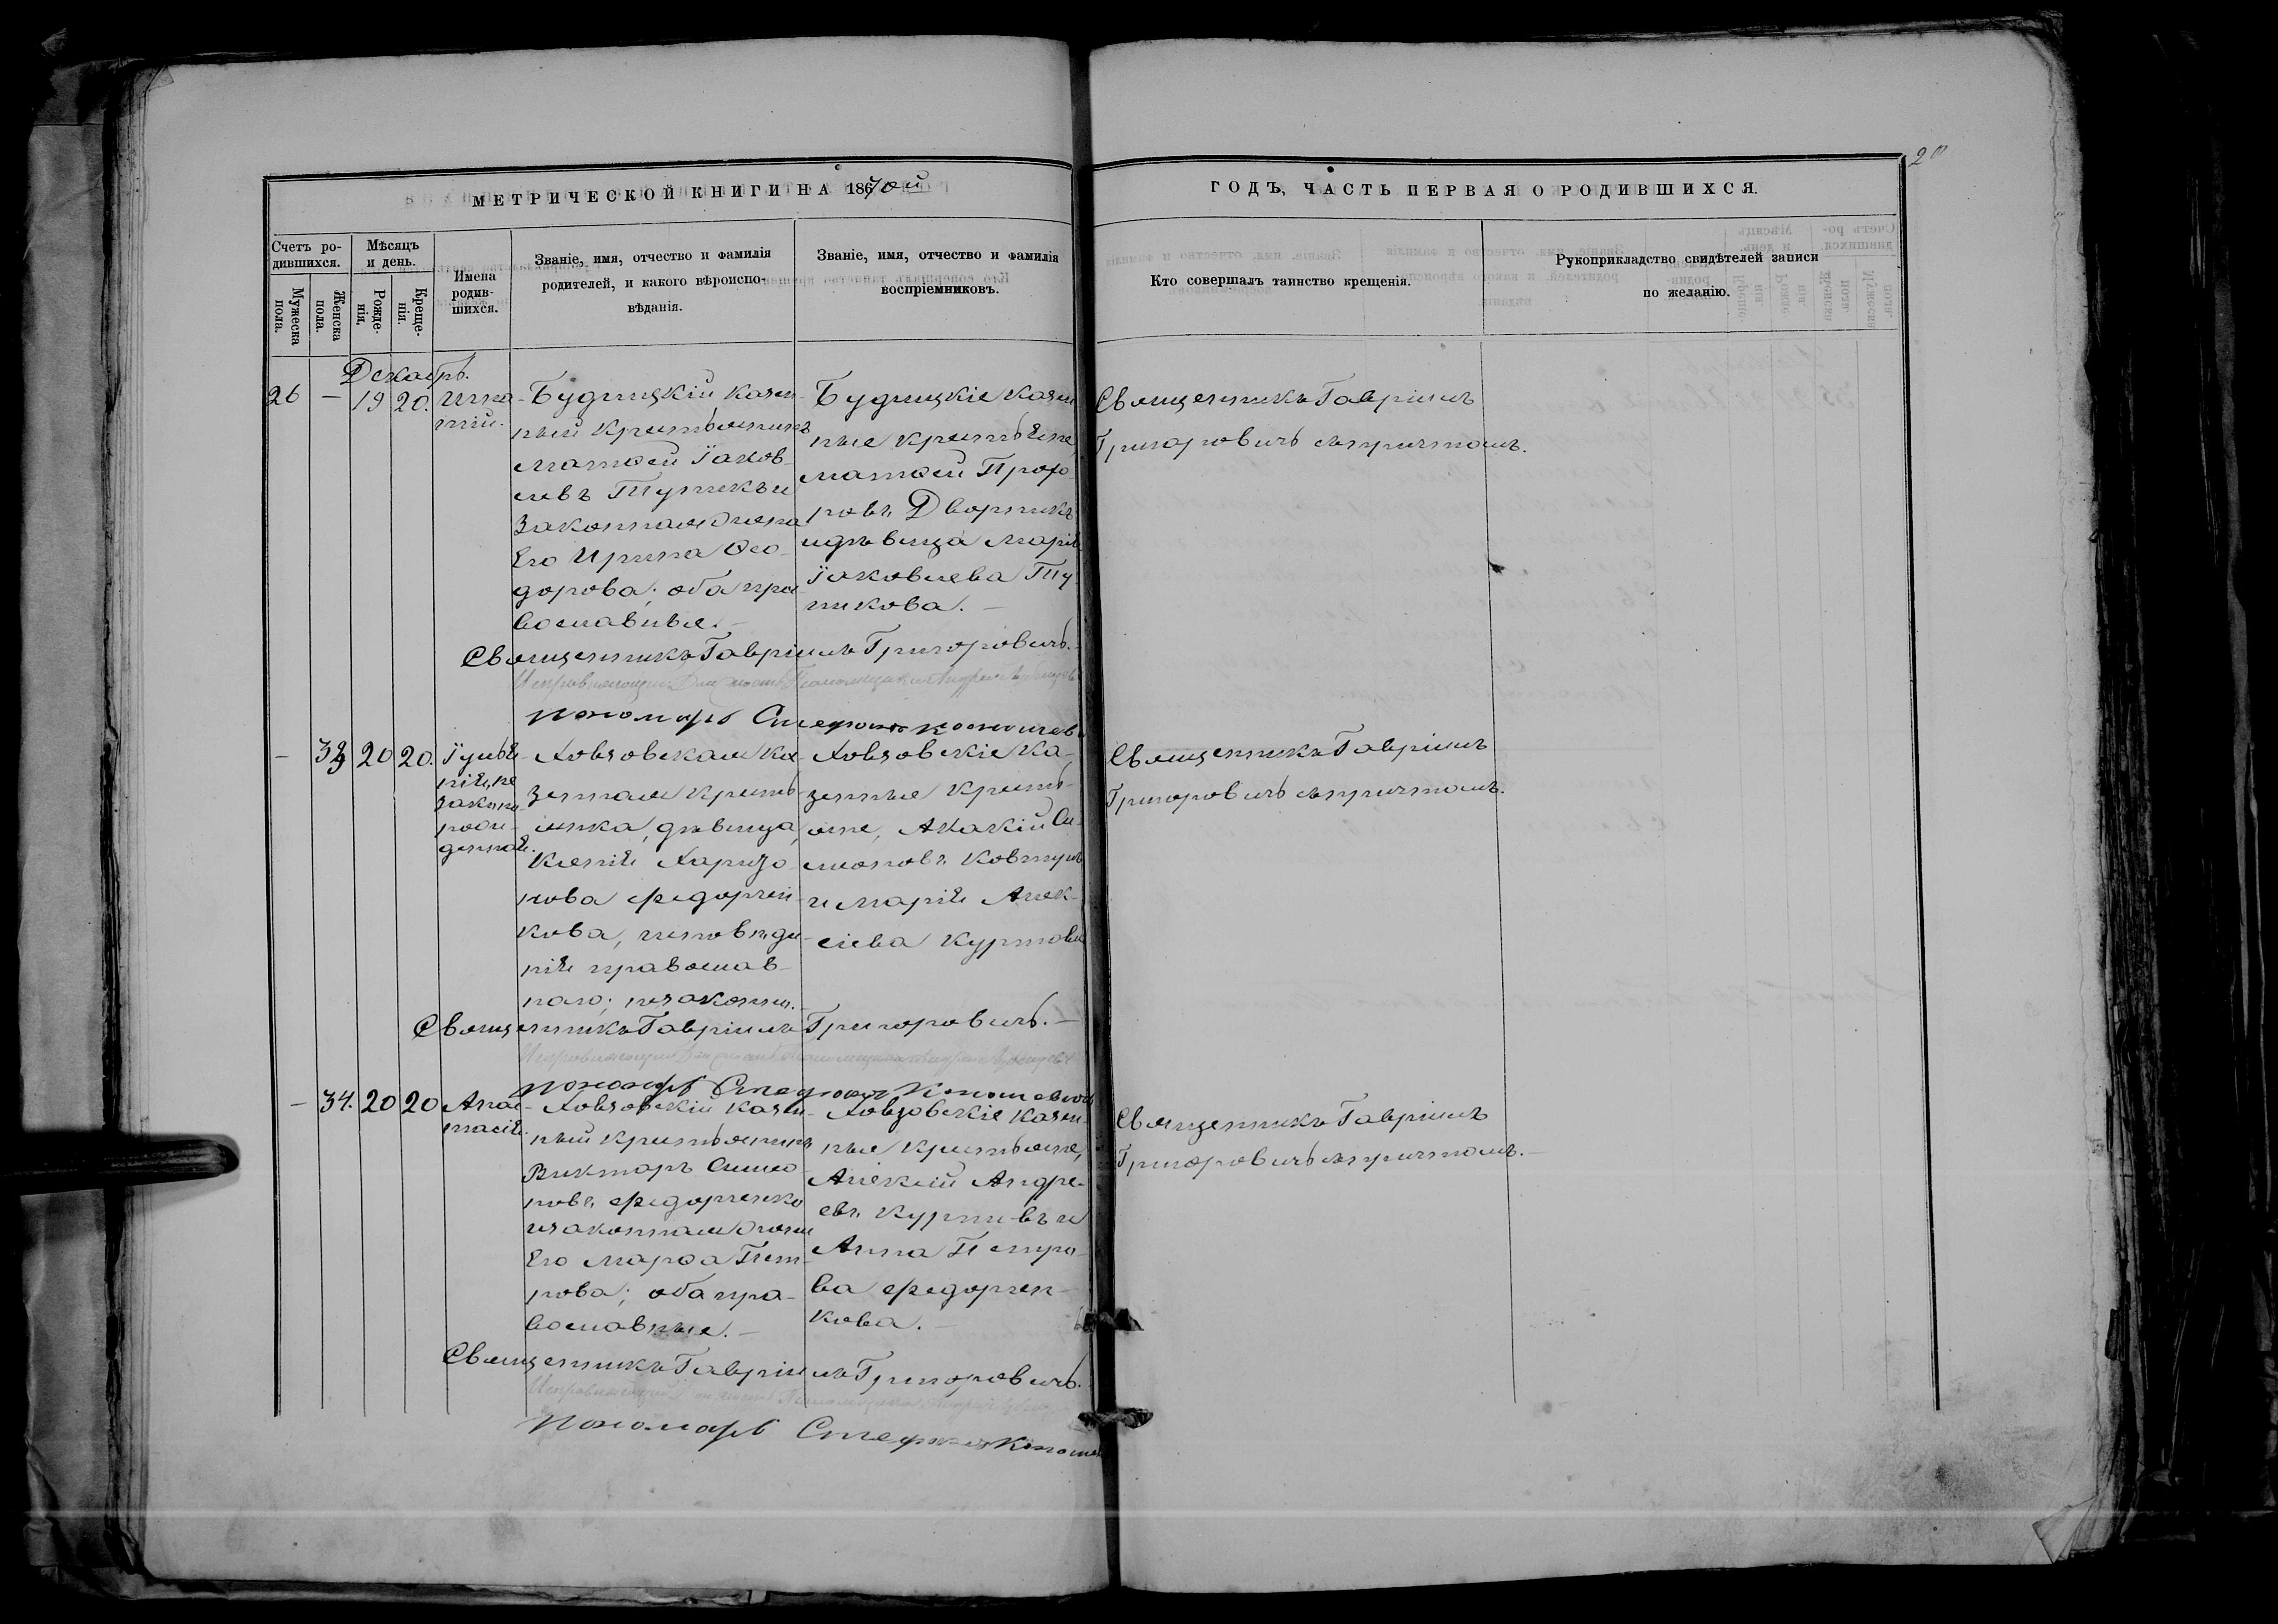 20
МЕТРИЧЕСКОЙ КНИГИ НА 1870ой
ГОДЪ, ЧАСТЬ ПЕРВАЯ О РОДИВШИХСЯ.
Счетъ ро-
дившихся.
Мужеска
пола.
Женска
пола.
Мѣсяцъ
и день.
Рожде-
нія.
Креще-
нія.
Имена
родив-
шихся.
Званіе, имя, отчество и фамилія
родителей, и какого вѣроиспо-
вѣданія.
Званіе, имя, отчество и фамилія
воспріемниковъ.
Кто совершалъ таинство крещенія.
Рукоприкладство свидѣтелей записи
по желанію.
Декабрь.
26 — 19 20. Игна-
тій.
Будищкій казен-
ный крестьянинъ
Матѳей Іаков-
левъ Тупикъ и
законная жена
Его Ирина Ѳео-
дорова; оба пра-
вославные.
Будищкіе казен
ные крестьяне
Матѳей Прохо
ровъ Дворникъ
и дѣвица Марія
Іаковлева Ту
пикова. —
Священникъ Гавріилъ
Григоровичъ съ причтомъ.
Священникъ Гавріилъ Григоровичъ.
Пономарь Стефанъ
— 33 20 20. Іулія
нія, не
законно
рож-
денная.
Ховзовская ка-
зенная кресть-
янка, дѣвица,
Ксенія Харито-
нова Федорчен-
кова, исповѣда-
нія православ-
наго; незаконно.
Ховзовскіе ка-
зенные кресть-
яне, Акакій Си-
моновъ Ковтунъ
и Марія Алек-
сіева Куртова
Священникъ Гавріилъ
Григоровичъ съ причтомъ.
Священникъ Гавріилъ Григоровичъ. —
Пономарь Стефанъ
— 34. 20 20 Анас-
тасія.
Ховзовскій казен-
ный крестьянинъ
Викторъ Симо-
новъ Федорченко
и законная жена
Его Марѳа Пет-
рова; оба пра-
вославные. —
Ховзовскіе казен-
ные крестьяне,
Алексій Андре-
евъ и
Анна Петро-
ва Федорчен-
кова. —
Священникъ Гавріилъ
Григоровичъ съ причтомъ. —
Священникъ Гавріилъ Григоровичъ.
Пономарь Стефанъ